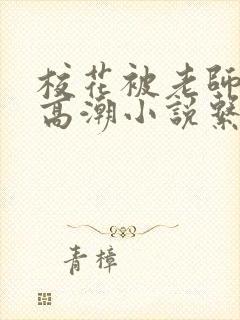 校花被老師
高潮小說繫
青樟